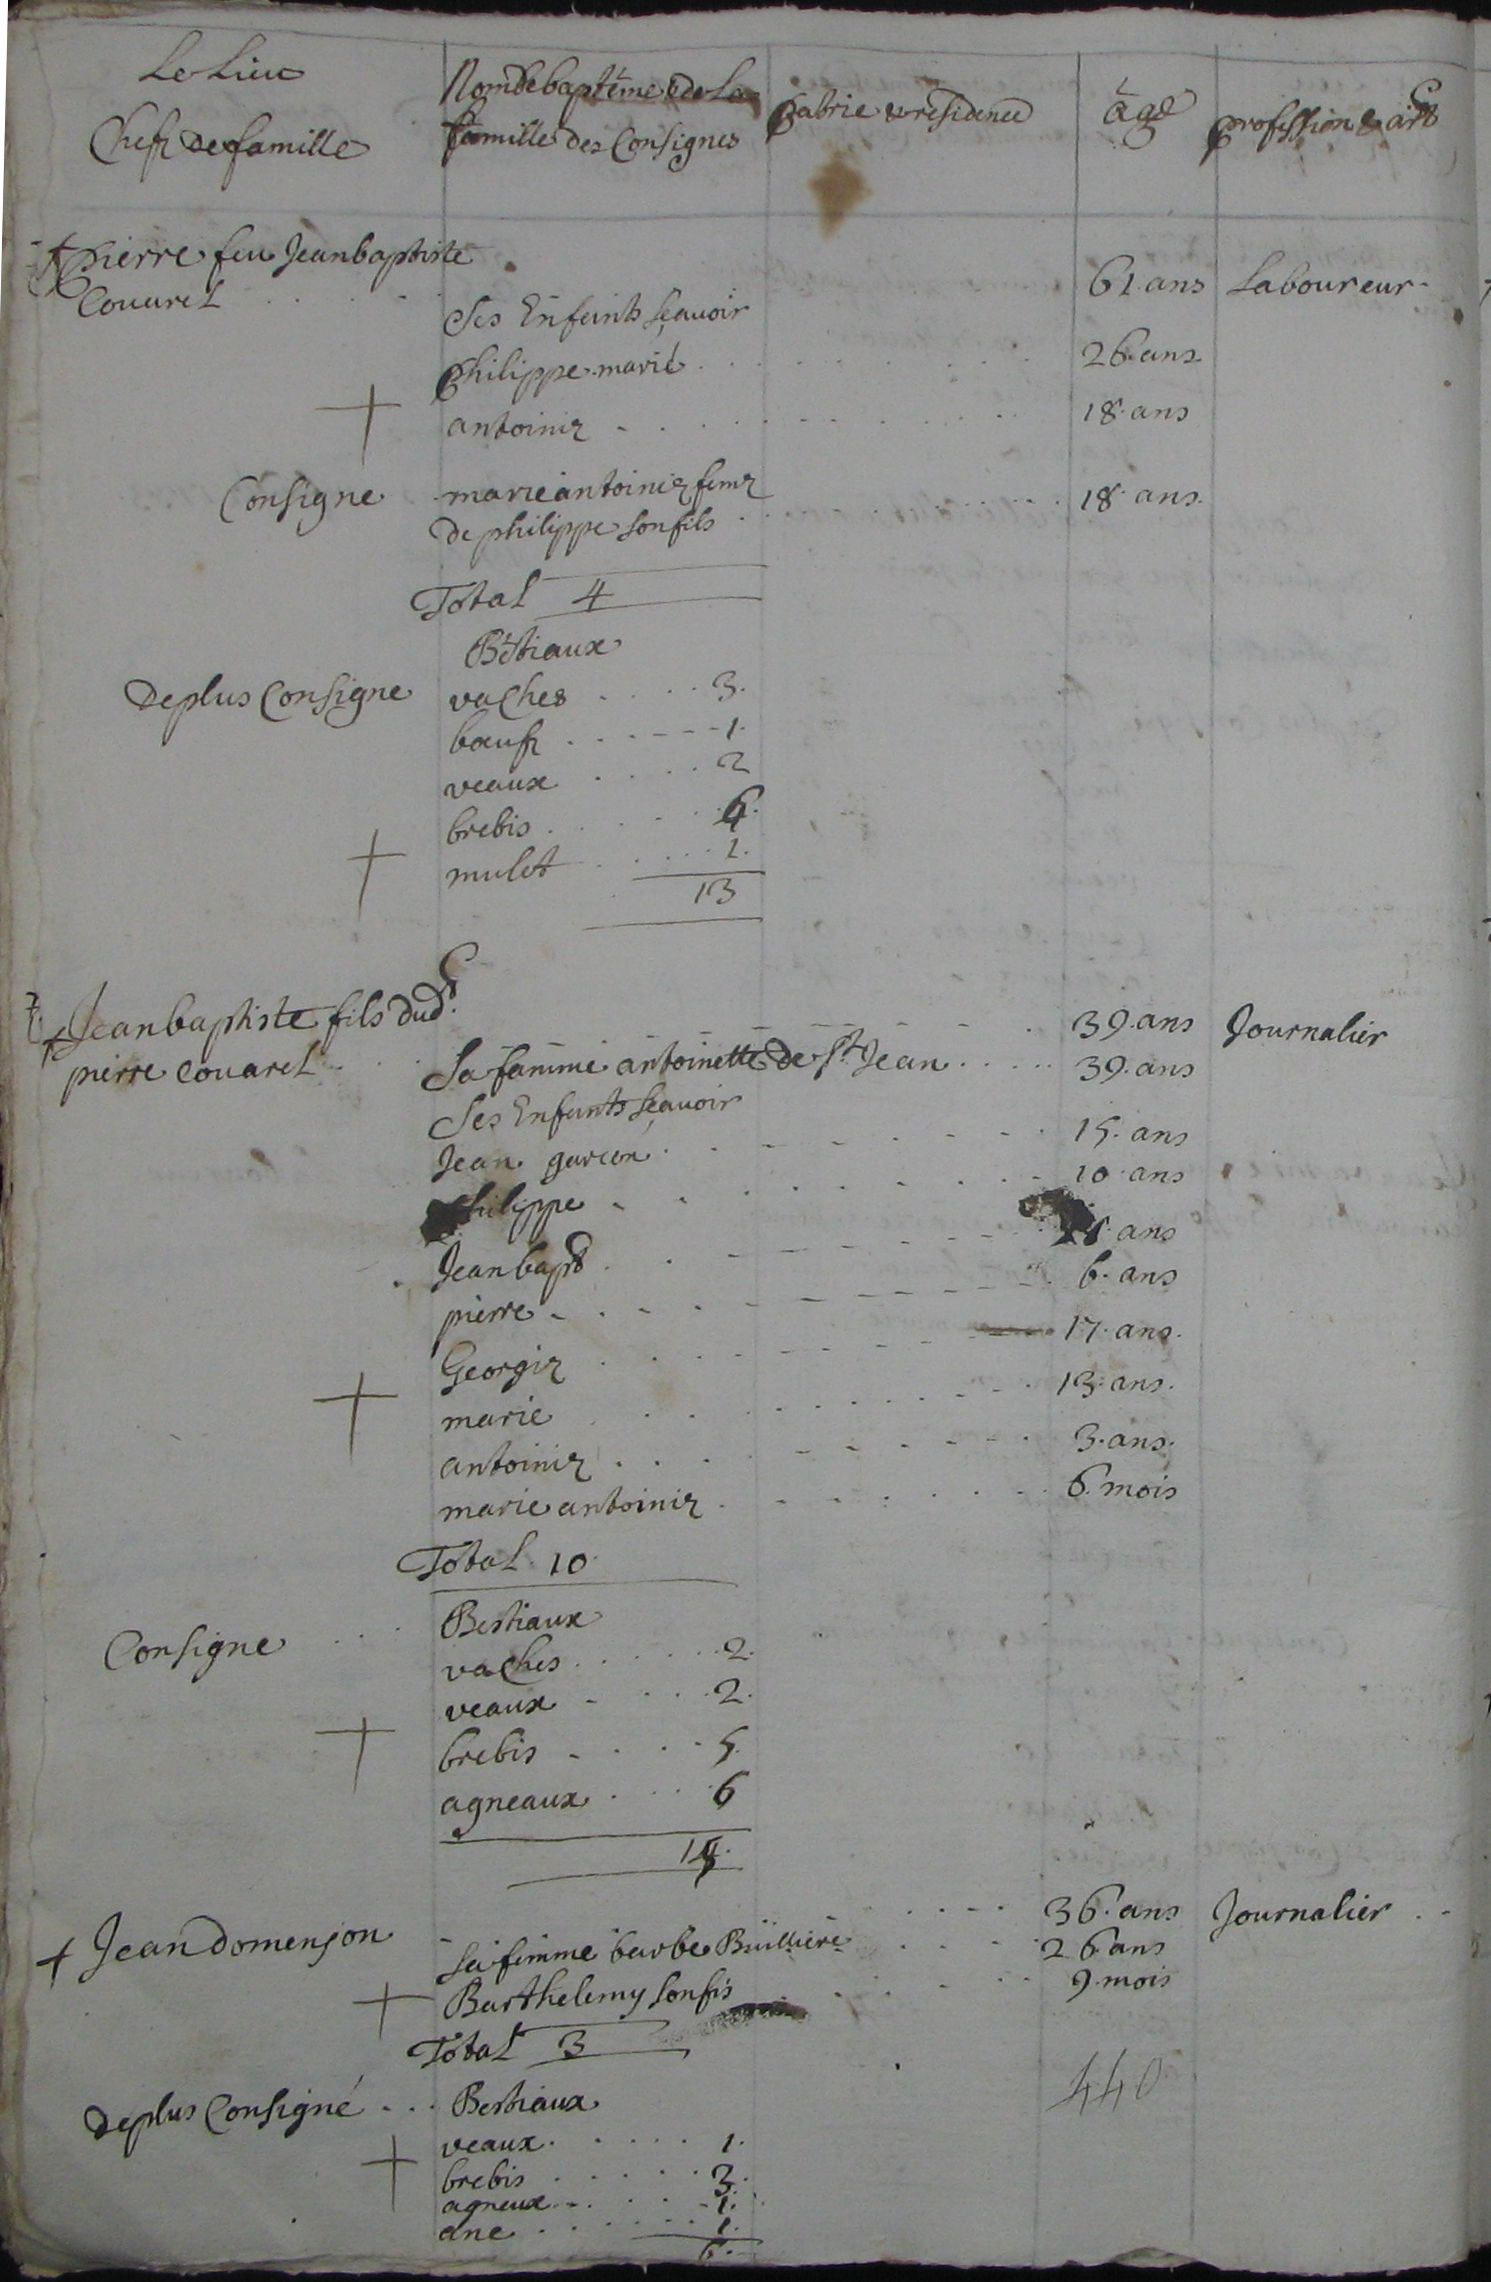 Le Lieu
Chefs de famille
Nom de baptéme & de La
famille des Consignes
patrie & residence
âge
profession & art
Pierre feu Jean baptiste
Couarel
61 ans Laboureur
Ses Enfants sçauoir
philippe marié 26 ans
antoine 18 ans
Consigne marie antoine feme 18 ans
de philippe son fils
Total 4
Béstiaux
De plus Consigne vaches 3
bœufs 1
veaux 2
brebis 6
mulet 1
13
Jean baptiste fils dud.t 39 ans Journalier
pierre Couarel Sa famme antoinette de St Jean 39 ans
Ses Enfants sçauoir
Jean garcon 15 ans
philippe 10 ans
Jean bapte ans
pierre 6 ans
Georgie 17 ans
marie 13 ans
antoine 3 ans
marie antoine 6 mois
Total 10
Consigne Bestiaux
vaches 2
veaux 2
brebis 5
agneaux 6
15
Jean Domenjon 36 ans Journalier
sa femme barbe 26 ans
Barthelemy son fis 9 mois
Total 3
440
De plus Consigné Bestiaux
veaux 1
brebis 3
agneux 1
ane 1
6